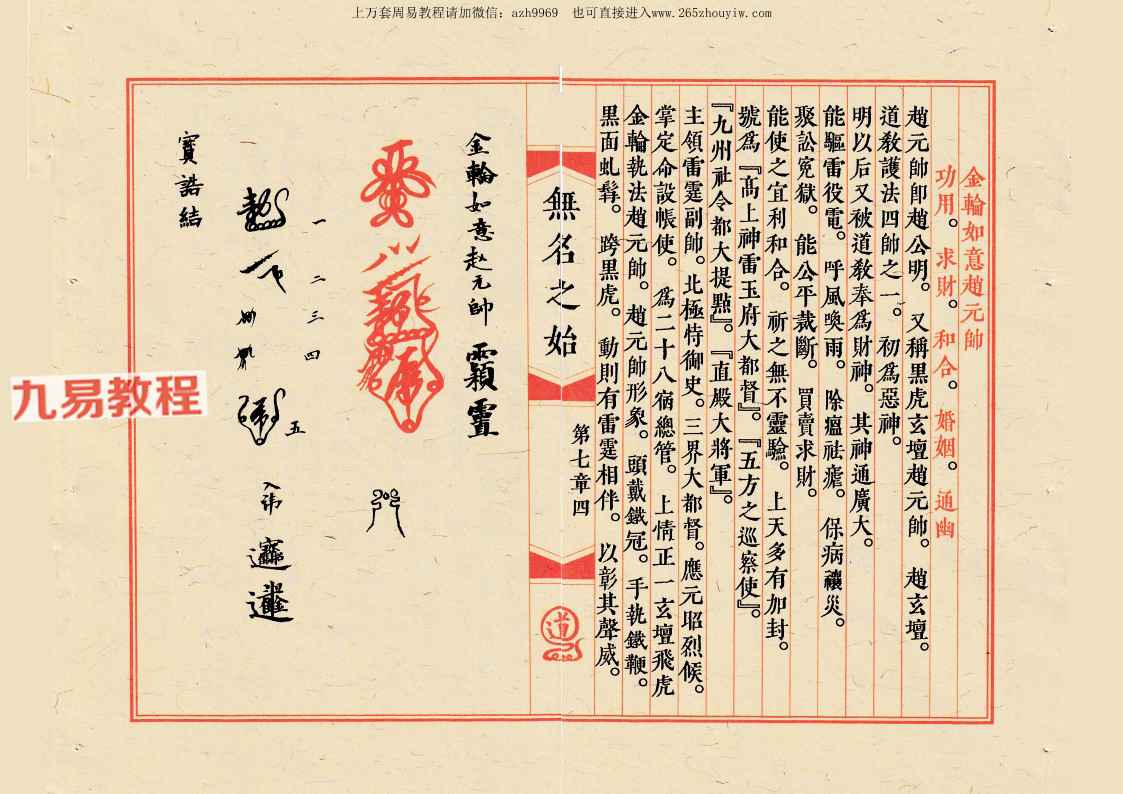 上万套周易教程请加微信：azh9969　也可直接进入www.265zhouyiw.com
金輪如意趙元帥
功用。求財。和合。婚姻。通幽
趙元帥卽趙公明。又稱黑虎玄壇趙元帥。趙玄壇。
道教護法四帥之一。初爲惡神。
明以后又被道教奉爲財神。其神通廣大。
能驅雷役電。呼風喚雨。除瘟祛瘧。保病禳災。
聚訟冤獄。能公平裁斷。買賣求財。
能使之宜利和合。祈之無不靈驗。上天多有加封。
號爲『高上神雷玉府大都督』。『五方之巡察使』。
『九州社令都大提點』。『直殿大將軍』。
主領雷霆副帥。北極恃御史。三界大都督。應元昭烈候。
掌定命設帳使。爲二十八宿總管。上情正一玄壇飛虎
金輪執法趙元帥。趙元帥形象。頭戴鐵冠。手執鐵鞭。
黑面虬髯。跨黑虎。動則有雷霆相伴。以彰其聲威。
無名之始
第七章四
道
金輪如意赵元帥
一二三四五
寶誥結
九易教程